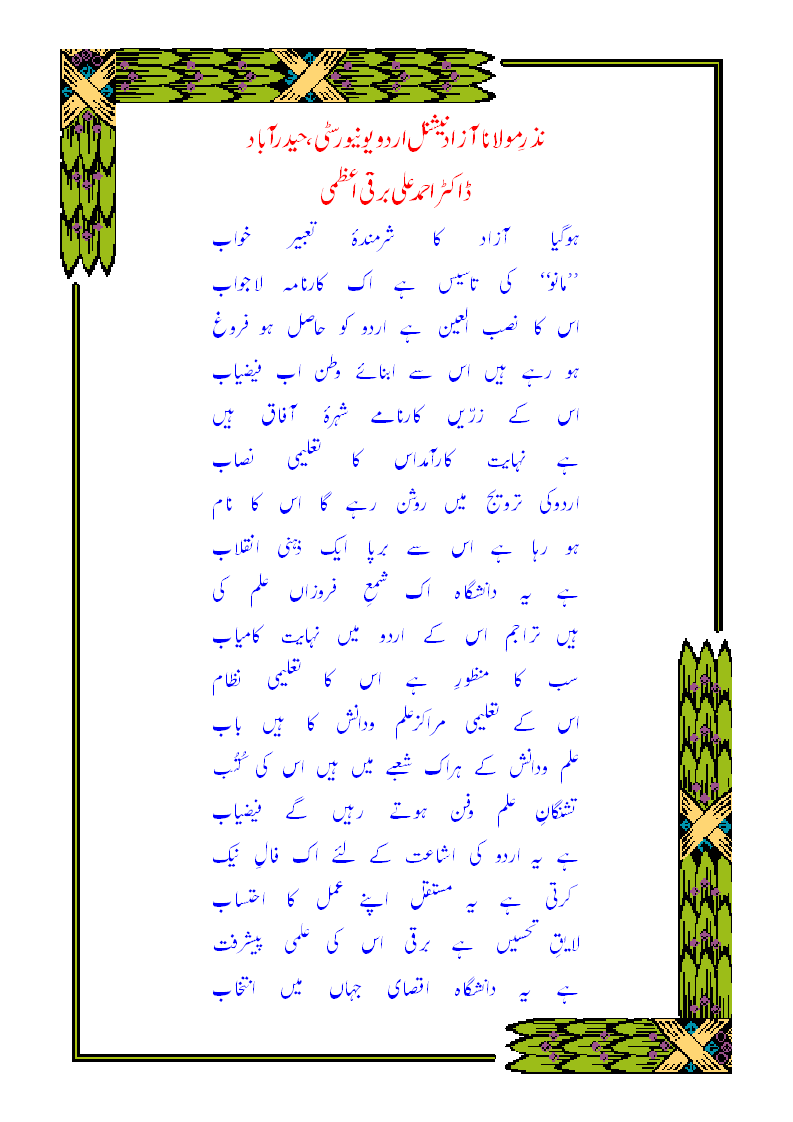 نذرِ مولانا آزاد نیشنل اردو یونیورسٹی، حیدرآباد
ڈاکٹر احمد علی برقی اعظمی
ہوگیا آزاد کا شرمندۂ تعبیر خواب
’’مانو‘‘ کی تاسیس ہے اک کارنامہ لاجواب
اس کا نصب العین ہے اردو کو حاصل ہو فروغ
ہو رہے ہیں اس سے ابنائے وطن اب فیضیاب
اس کے زرّیں کارنامے شہرۂ آفاق ہیں
ہے نہایت کارآمداس کا تعلیمی نصاب
اردوکی ترویج میں روشن رہے گا اس کا نام
ہو رہا ہے اس سے برپا ایک ذہنی انقلاب
ہے یہ دانشگاہ اک شمعِ فروزاں علم کی
ہیں تراجم اس کے اردو میں نہایت کامیاب
سب کا منظورِ ہے اس کا تعلیمی نظام
اس کے تعلیمی مراکزعلم ودانش کا ہیں باب
علم ودانش کے ہراک شعبے میں ہیں اس کی کُتُب
تشنگانِ علم وفن ہوتے رہیں گے فیضیاب
ہے یہ اردو کی اشاعت کے لئے اک فالِ نیک
کرتی ہے یہ مستقل اپنے عمل کا احتساب
لایقِ تحسیں ہے برقی اس کی علمی پیشرفت
ہے یہ دانشگاہ اقصای جہاں میں انتخاب